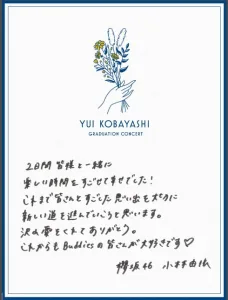 YUI KOBAYASHI
GRADUATION CONCERT
2日間 皆様と一緒に
楽しい時間をすごせて幸せでした!
これまで皆さんとすごした思い出を大切に
新しい道を進んでいこうと思います。
沢山愛をくれてありがとう。
これからもBuddiesの皆さんが大好きです♡
櫻坂46 小林由依